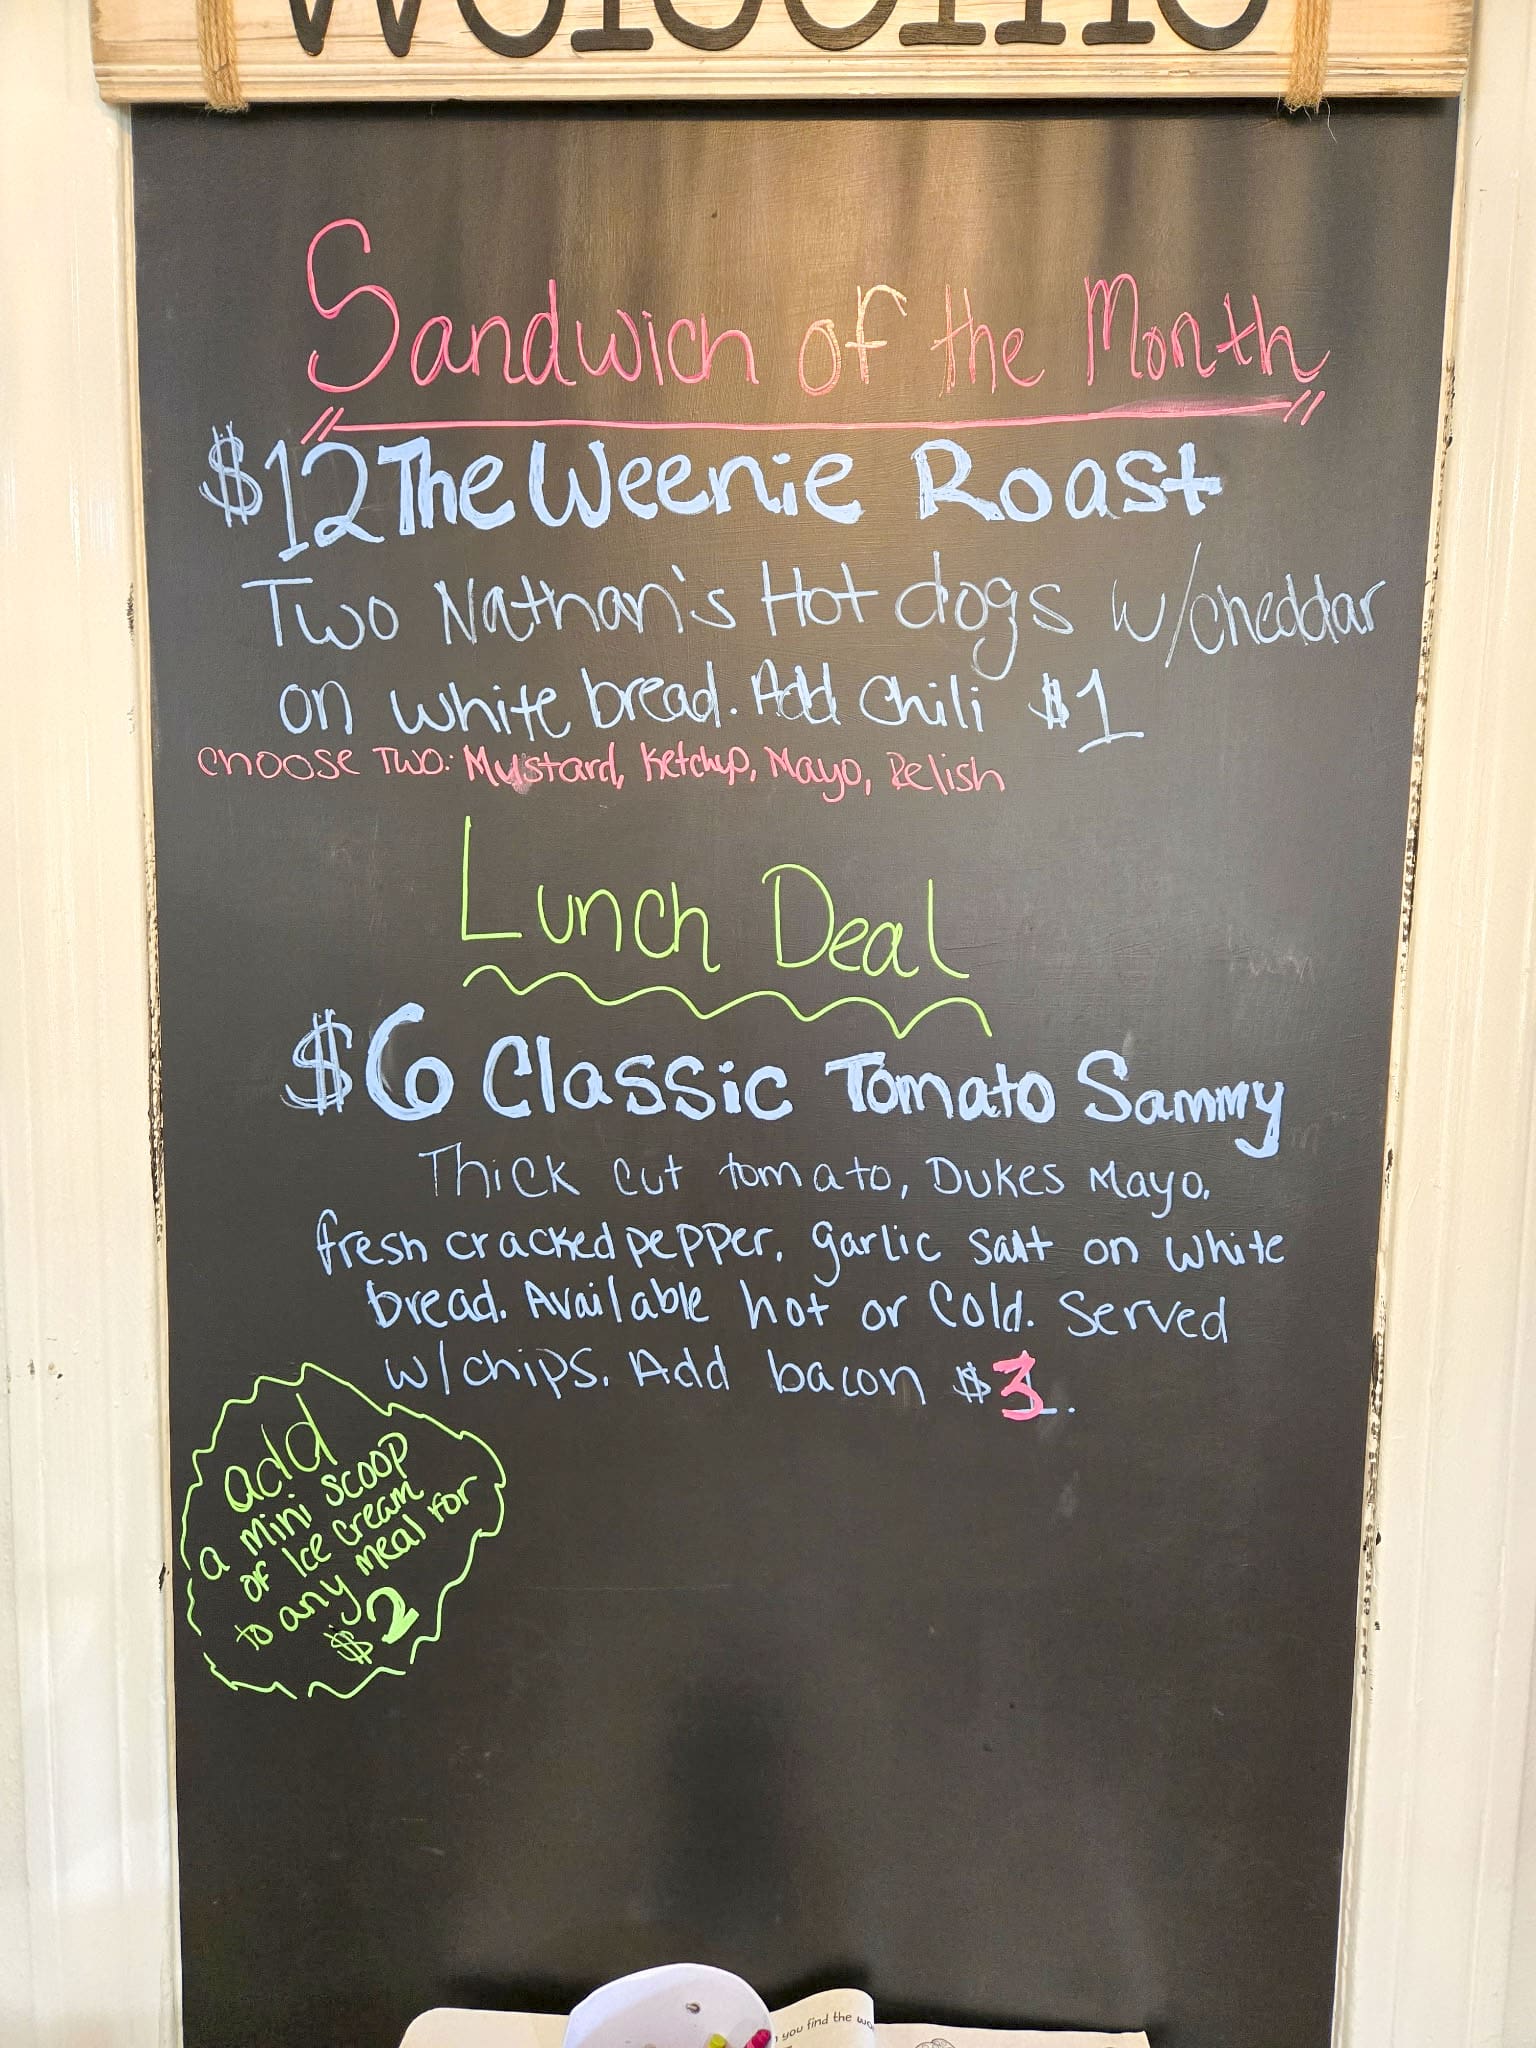 Welcome
Sandwich of the Month
$12 The Weenie Roast
Two Nathan's Hot dogs w/cheddar
on white bread. Add Chili $1
choose Two: Mustard, Ketchup, Mayo, Relish
Lunch Deal
$6 Classic Tomato Sammy
Thick cut tomato, Dukes Mayo,
fresh cracked pepper, garlic salt on white
bread. Available hot or Cold. Served
w/chips. Add bacon $3.
add
a mini scoop
of Ice cream
to any meal for
$2
you find the